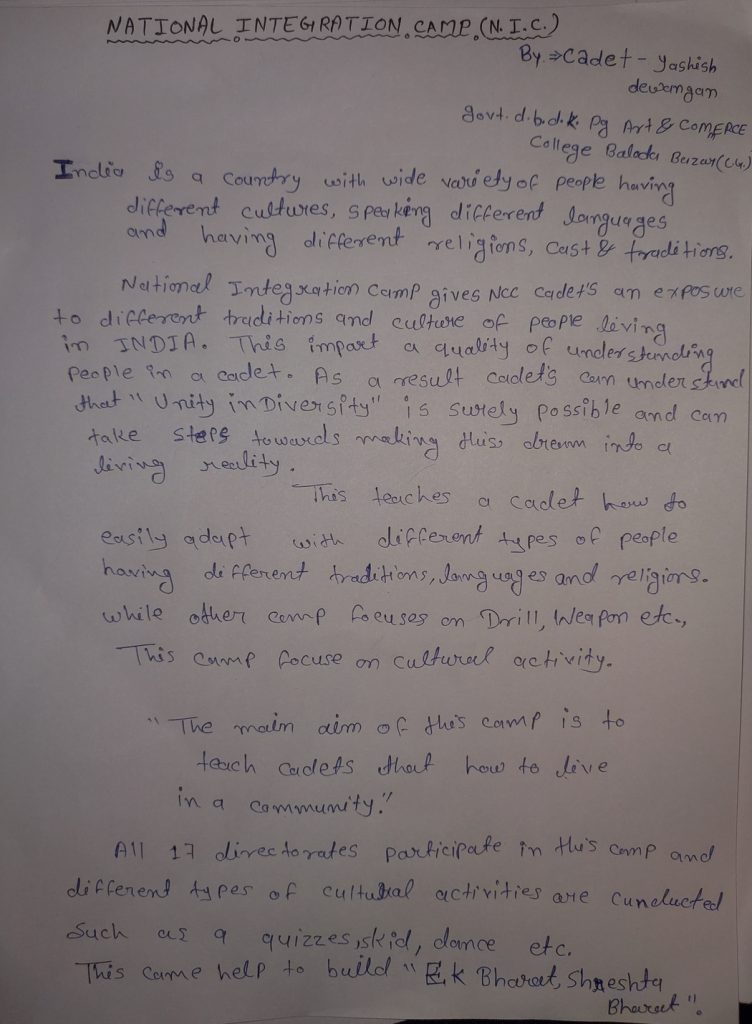 NATIONAL INTEGRATION CAMP (N.I.C.)
By ⇒ Cadet - Yashish
dewangan
govt. d.b.d.k. Pg Art & COMERCE
College Baloda Bazar (C.G.)
India is a country with wide variety of people having
different cultures, speaking different languages
and having different religions, cast & traditions.
National Integration Camp gives NCC cadet's an exposure
to different traditions and culture of people living
in INDIA. This impart a quality of understanding
people in a cadet. As a result cadet's can understand
that "Unity in Diversity" is surely possible and can
take steps towards making this dream into a
living reality.
This teaches a cadet how to
easily adapt with different types of people
having different traditions, languages and religions.
while other camp focuses on Drill, Weapon etc.,
This camp focuse on cultural activity.
"The main aim of this camp is to
teach cadets that how to live
in a community."
All 17 directorates participate in this camp and
different types of cultural activities are cunducted
Such as a quizzes, skid, dance etc.
This came help to build "Ek Bharat, Shreshta
Bharat".